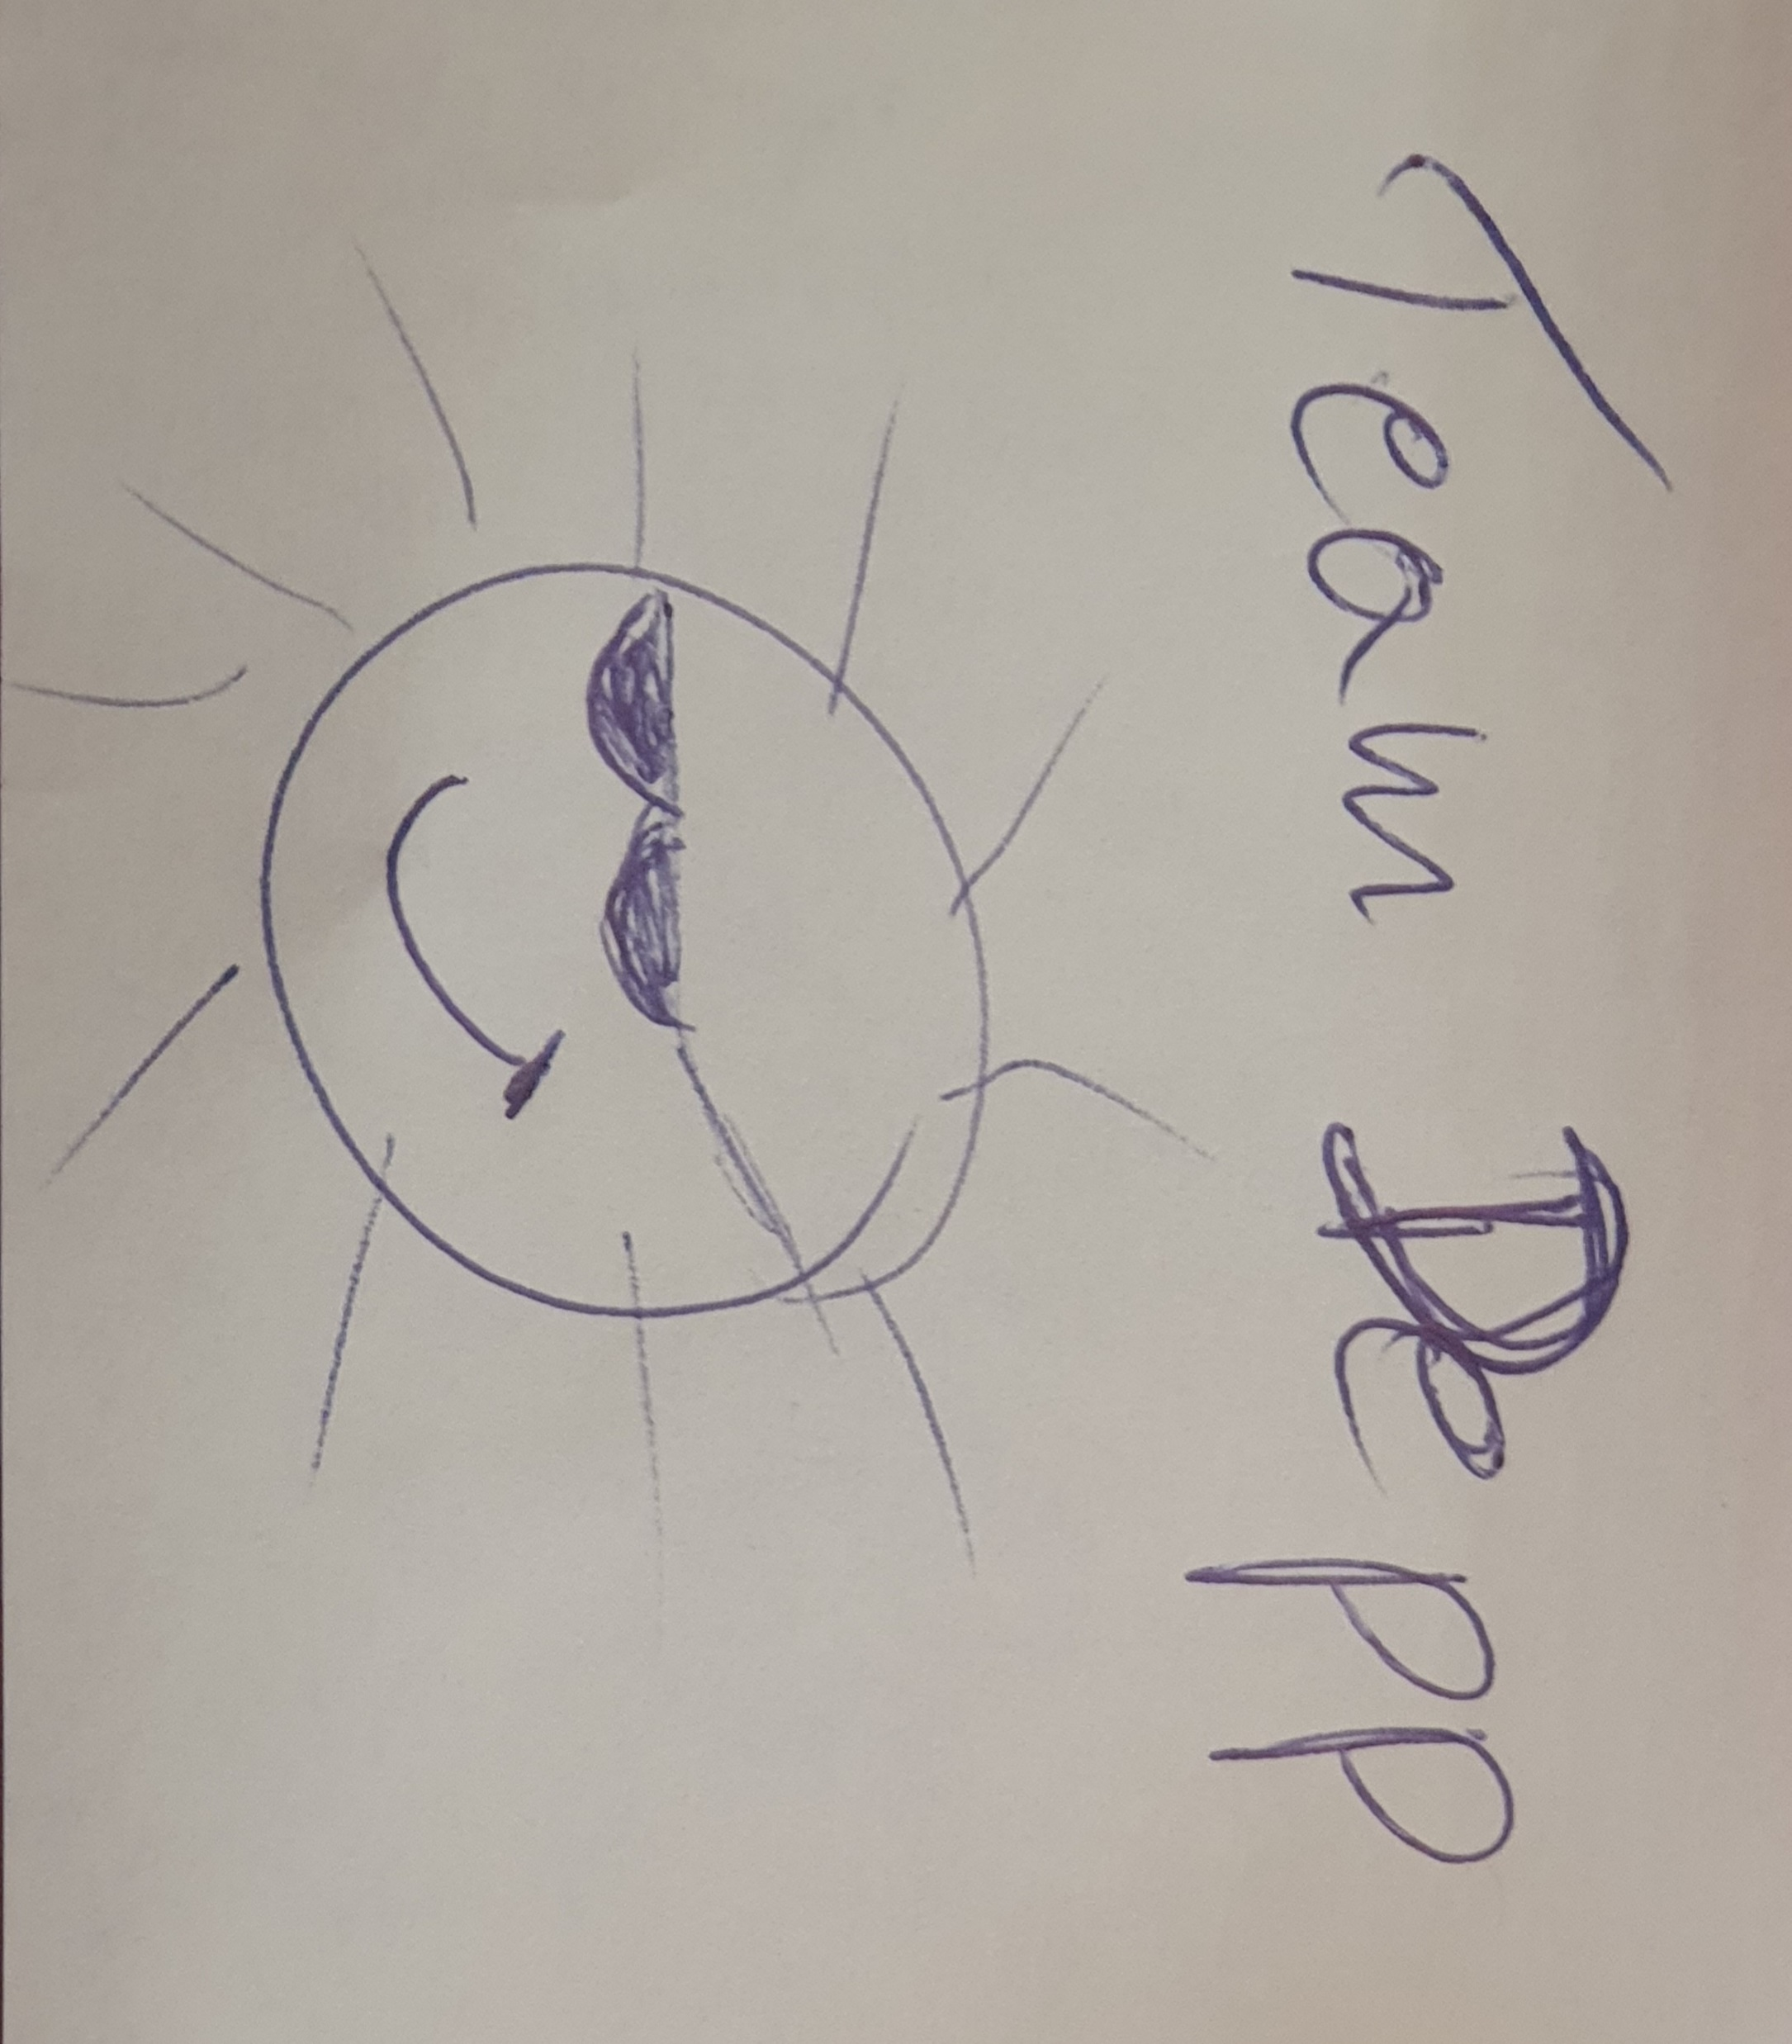 Team Depp